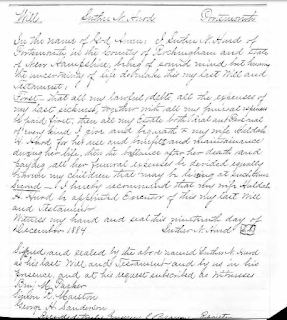 Will, Luther N. Hurd Portsmouth
In the name of God Amen: I Luther N. Hurd of
Portsmouth in the County of Rockingham and State
of New Hampshire, being of sound mind but knowing
the uncertainty of life do make this my last Will and
Testament;
First - that all my lawful debts all the expenses of
my last sickness, together with all my funeral expenses
be paid first, then all my Estate both Real and Personal
of every kind I give and bequeath to my wife Huldah
H. Hurd for her use and benefit and maintainance
during her life, then the balance after her death and
paying all her funeral expenses to be divided equally
between my children that may be living at such time
Second - I hereby recommend that my wife Huldah
H. Hurd be appointed Executor of this my last Will
and Testament
Witness my hand and seal this nineteenth day of
December 1884 Luther N. Hurd
Signed and sealed by the above named Luther N. Hurd
as his last Will and Testament and by us in his
Presence, and at his request subscribed as Witnesses
Wm. M. Parker
Marston
George H. Sanderson